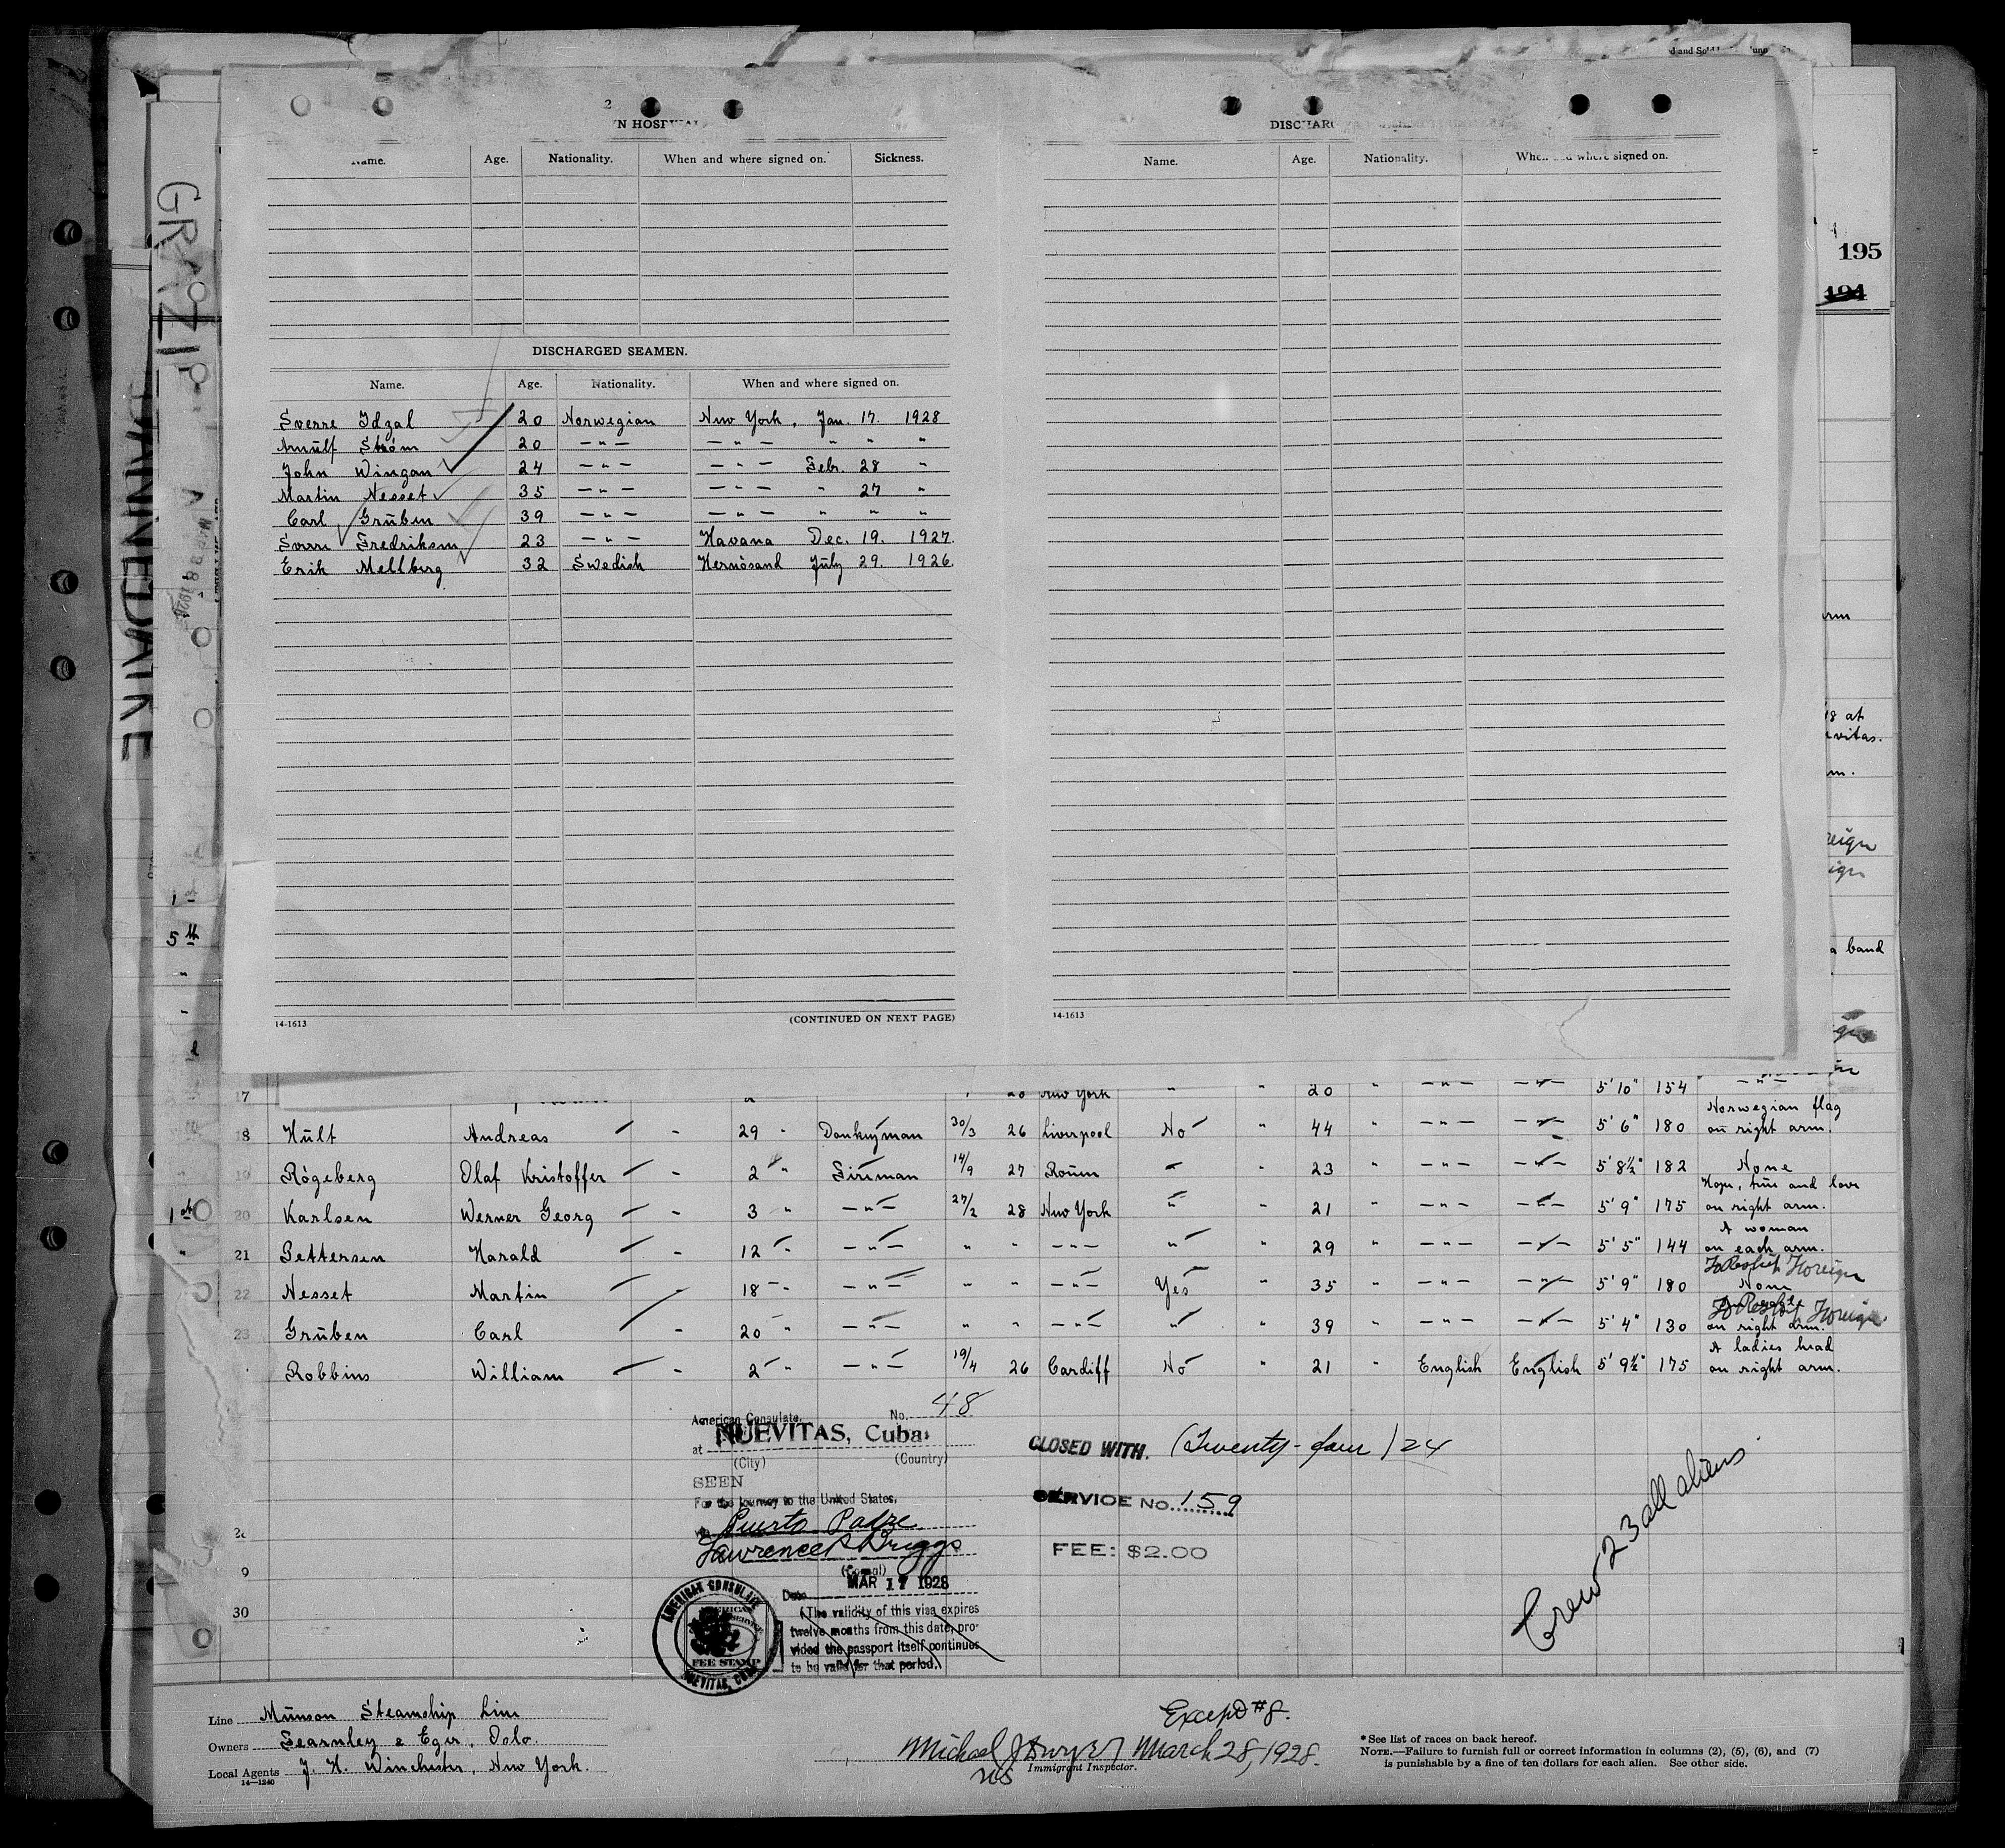 195
194
GRAZI
2
DISCHARGED SEAMEN.
Name. Age. Nationality. When and where signed on. Sickness.
Name. Age. Nationality. When and where signed on.
Name. Age. Nationality. When and where signed on.
Sverre Idzal 20 Norwegian New York, Jan. 17. 1928
Arnülf Strøm 20 — " — — " — " " "
John Wingan 24 — " — — " — Febr. 28 "
Martin Nesset 35 — " — — " — " 27 "
Carl Grüben 39 — " — — " — " " "
Sverre Fredriksen 23 — " — Havana Dec. 19. 1927.
Erik Mellberg 32 Swedish Hernösand Jüly 29. 1926.
14-1613 (CONTINUED ON NEXT PAGE)
14-1613
17 28 New York " " 20 " — " — — " — 5' 10" 154 — " —
18 Hült Andreas - 29 " Donkeyman 30/3 26 Liverpool No " 44 " — " — — " — 5' 6" 180 Norwegian flag on right arm.
19 Rögeberg Olaf Kristoffer - 2 " Fireman 14/9 27 Roüen " " 23 " — " — — " — 5' 8½" 182 None
20 Karlsen Werner Georg - 3 " — " — 27/2 28 New York " " 21 " — " — — " — 5' 9" 175 Hope, true and love on right arm.
21 Pettersen Harald - 12 " — " — " " — " — " " 29 " — " — — " — 5' 5" 144 A woman on each arm.
22 Nesset Martin 18 " — " — " " — " — Yes " 35 " — " — — " — 5' 9" 180 None
Foreign
23 Grüben Carl - 20 " — " — " " — " — " " 39 " — " — — " — 5' 4" 130 on right arm.
Foreign
Robbins William - 2 " — " — 19/4 26 Cardiff No " 21 " English English 5' 9½" 175 A ladies head on right arm.
American Consulate, No. 48
at NUEVITAS, Cuba
(City) (Country)
SEEN
For the journey to the United States,
via Puerto Padre
Lawrence P. Briggs
(Consul)
Date MAR 17 1928
(The validity of this visa expires
twelve months from this date, pro-
vided the passport itself continues
to be valid for that period.)
AMERICAN CONSULATE
FEE STAMP
NUEVITAS, CUBA
CLOSED WITH. (Twenty-four) 24
SERVICE NO. 159
FEE: $2.00
Crew 23 all aliens
30
Line Munson Steamship Line
Owners Fearnley & Eger, Oslo.
Local Agents J. H. Winchester, New York.
14—1240
Except #8.
Michael J Dwyer March 28, 1928.
Immigrant Inspector.
*See list of races on back hereof.
NOTE.—Failure to furnish full or correct information in columns (2), (5), (6), and (7)
is punishable by a fine of ten dollars for each alien. See other side.